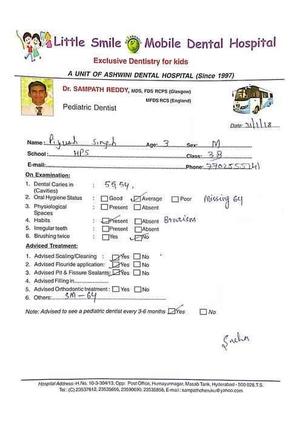 Little Smile Mobile Dental Hospital
Exclusive Dentistry for kids
A UNIT OF ASHWINI DENTAL HOSPITAL (Since 1997)
Dr. SAMPATH REDDY, MDS, FDS RCPS (Glasgow)
MFDS RCS (England)
Pediatric Dentist
Date: 31/1/18
Name: Piyush Singh Age: 3 Sex: M
School: HPS Class: 3B
E-mail: Phone:
On Examination:
1. Dental Caries in (Cavities) : 55,54,
2. Oral Hygiene Status : Good Average Poor Missing 64
3. Physiological Spaces : Present Absent
4. Habits : Present Absent Bruxism
5. Irregular teeth : Present Absent
6. Brushing twice : Yes No
Adviced Treatment:
1. Advised Scaling/Cleaning : Yes No
2. Advised Flouride application: Yes No
3. Advised Pit & Fissure Sealants: Yes No
4. Advised Filling in
5. Advised Orthodontic Treatment : Yes No
6. Others: SM - 64
Note: Advised to see a pediatric dentist every 3-6 months Yes No
Hospital Address -H.No. 10-3-304/13, Opp: Post Office, Humayunnagar, Masab Tank, Hyderabad - 500 028.T.S.